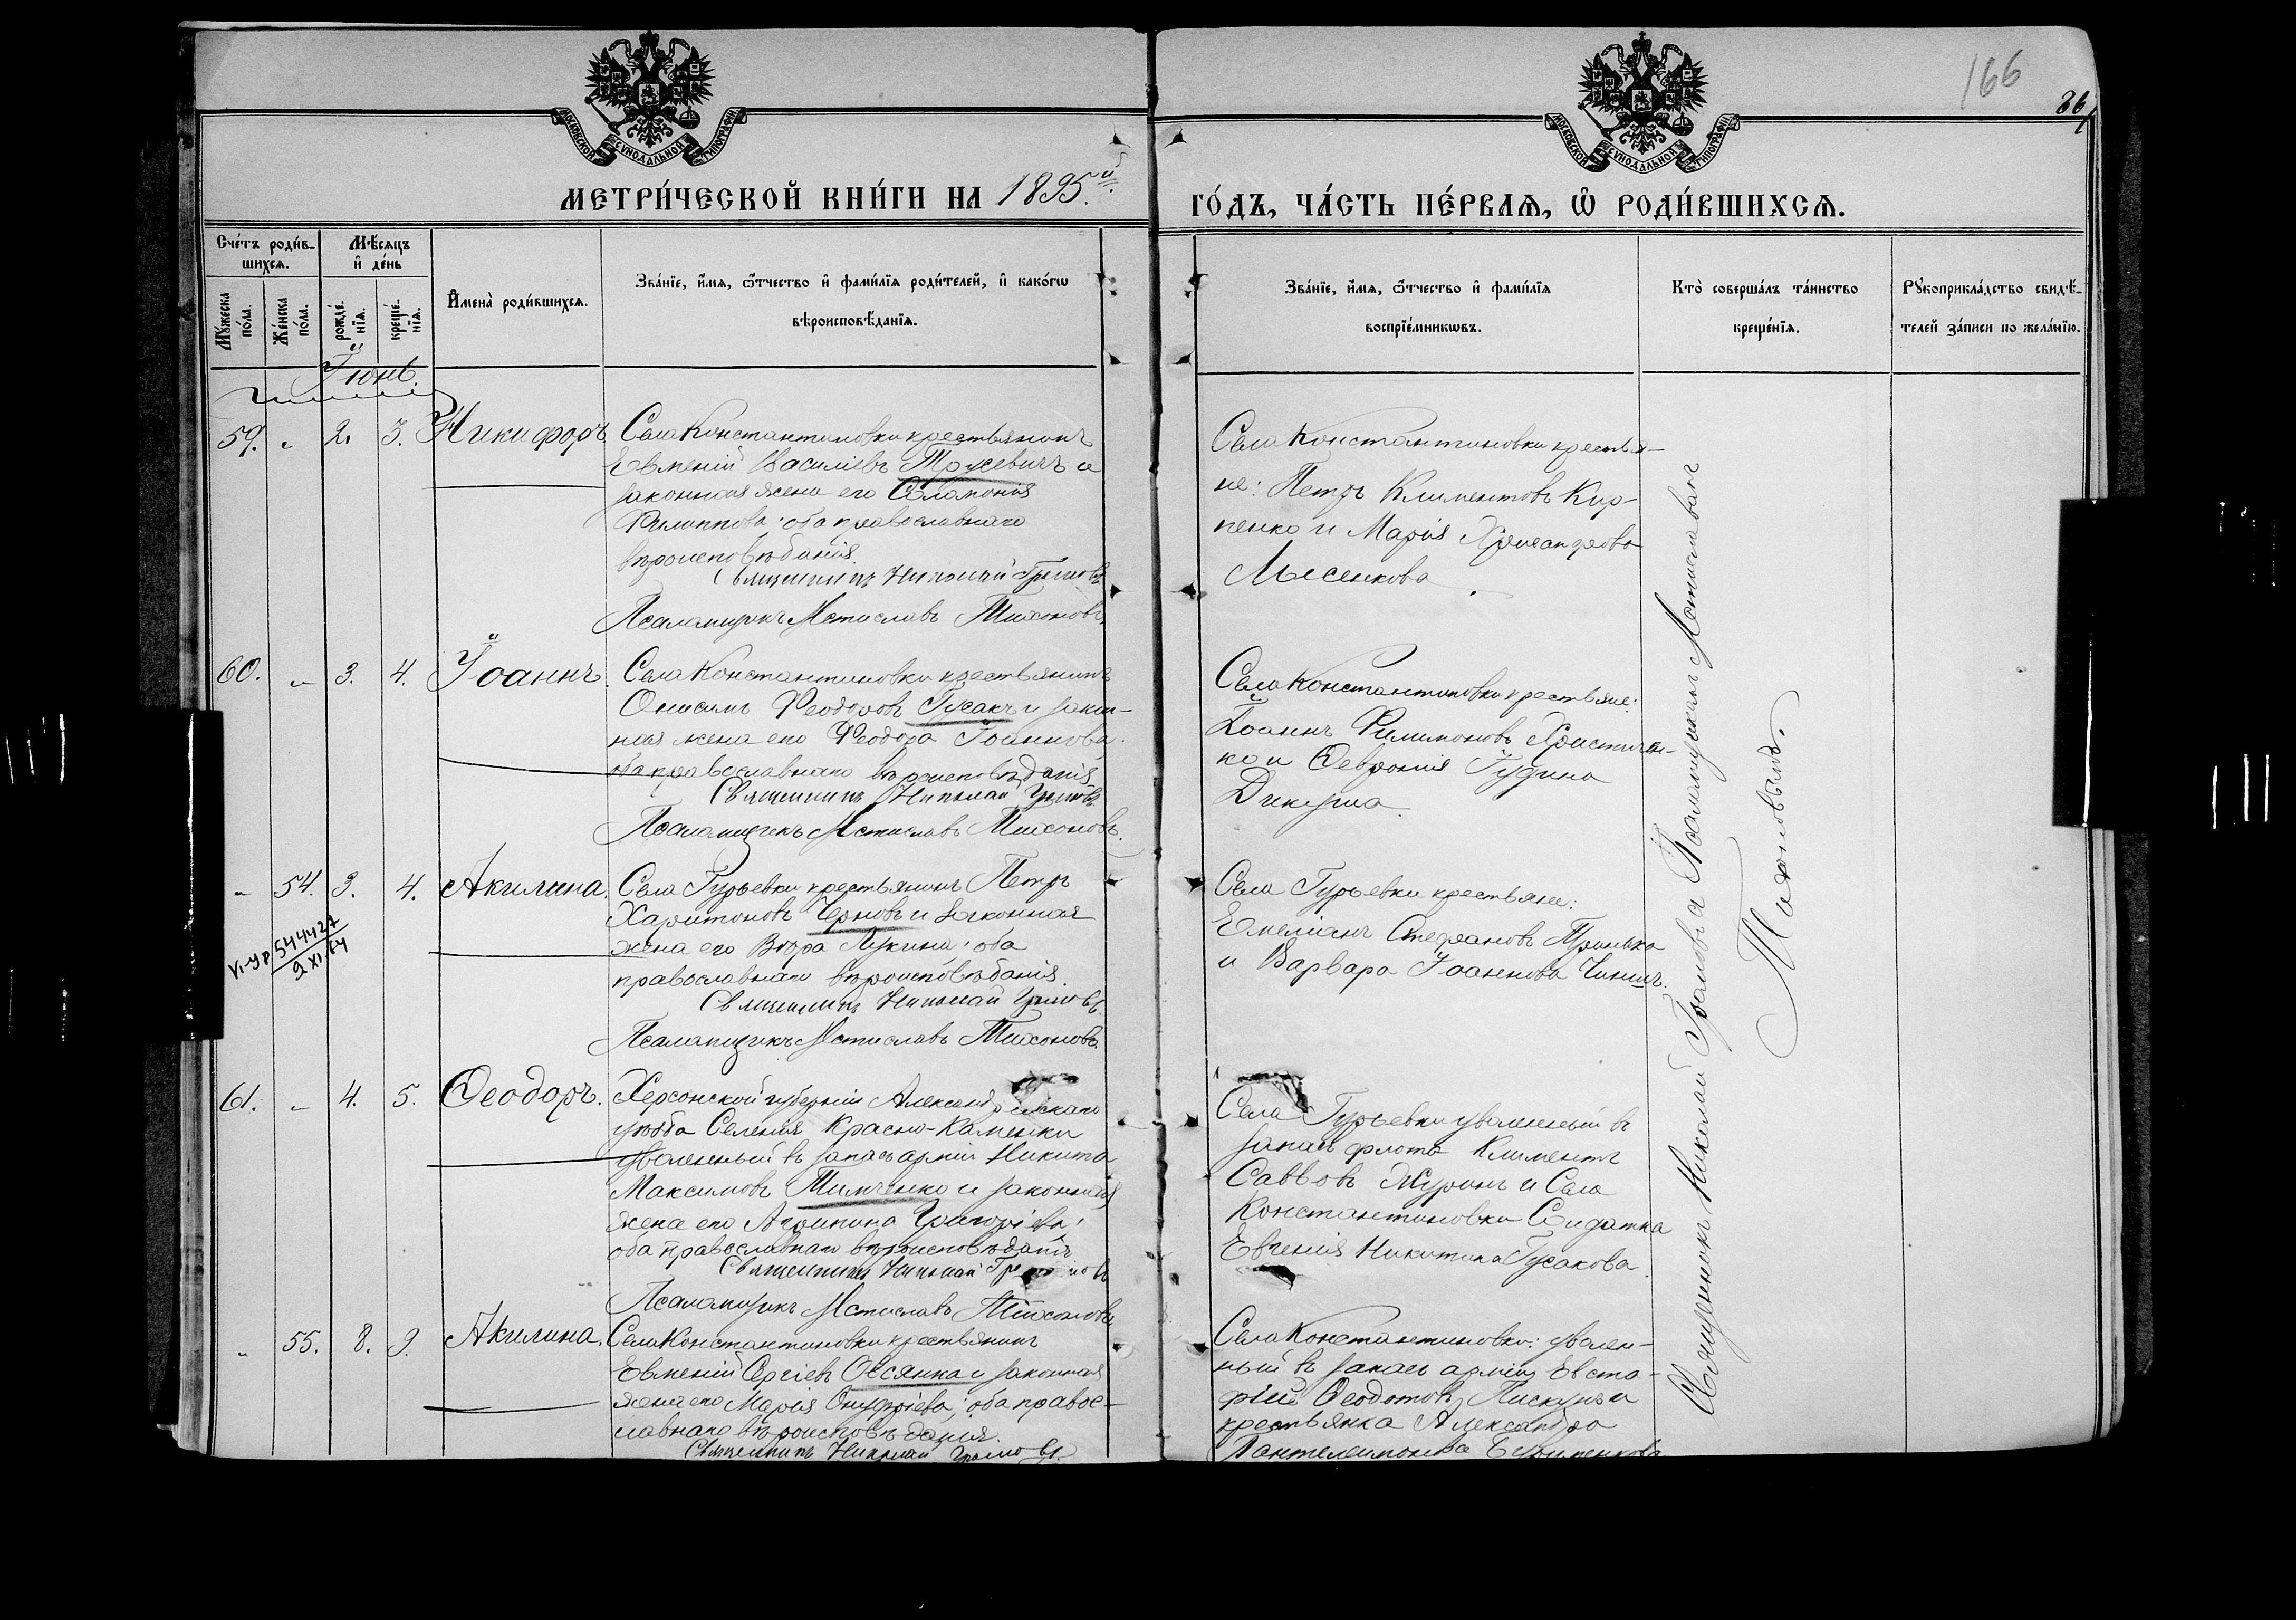 166
86
МОСКОВСКОЙ СУНОДАЛЬНОЙ ТИПОГРАФІИ
МОСКОВСКОЙ СУНОДАЛЬНОЙ ТИПОГРАФІИ
МЕТРИ́ЧЕСКОЙ КНИ́ГИ НА 1895.й
ГО́ДЪ, ЧА́СТЬ ПЕ́РВАѦ, Ѡ РОДИ́ВШИХСѦ.
Сче́тъ роди́в-
шихсѧ.
Мꙋ́жеска по́ла.
Же́нска по́ла.
Мѣ́сѧцъ
и де́нь
рожде́нїѧ.
креще́нїѧ.
И҆мена̀ роди́вшихсѧ.
Зва́нїе, и҆́мѧ, ѻ҆́тчество и҆ фами́лїѧ роди́телей, и҆ како́гѡ
вѣроисповѣ́данїѧ.
Зва́нїе, и҆́мѧ, ѻ҆́тчество и҆ фами́лїѧ
воспрїе́мникѡвъ.
Кто̀ соверша́лъ та́инство
креще́нїѧ.
Рꙋкоприкла́дство свидѣ́-
телей за́писи по жела́нїю.
Іюнь.
59. „ 2. 3. Никифоръ
Села Константиновки крестьянинъ
Евмений Василіевъ Трусевичъ и
законная жена его Соломонія
Филиппова: оба православнаго
вѣроисповѣданія.
Священникъ Николай Громовъ
Псаломщикъ Мстиславъ Тихоновъ.
Села Константиновки крестья-
не: Петръ Климентовъ Кир-
пенко и Марія Хрисанфова
Лысенкова
60. „ 3. 4. Іоаннъ.
Села Константиновки крестьянинъ
Онисимъ Феодоровъ Гусакъ и закон-
ная жена его Феодора Іоаннова.
оба православнаго вѣроисповѣданія
Священникъ Николай Громовъ
Псаломщикъ Мстиславъ Тихоновъ.
Села Константиновки крестьяне:
Іоаннъ Филимоновъ Христичен-
ко и Феврония
61. „ 4. 5. Ѳеодоръ.
„ 54. 3. 4. Акилина.
544427
2 XI.64
Села Гурьевки крестьянинъ Петръ
Харитоновъ Черновъ и законная
жена его Вѣра Лукина: оба
православнаго вѣроисповѣданія.
Священникъ Николай Громовъ.
Псаломщикъ Мстиславъ Тихоновъ.
Села Гурьевки крестьяне:
Емеліанъ Стефановъ Гринько
и Варвара Іоаннова
Херсонской губерніи Александрійскаго
уѣзда Селенія Красно-Каменки
уволенный въ запасъ арміи Никита
Максимовъ Тимченко и законная
жена его Агрипина Григоріева:
оба православнаго вѣроисповѣданія
Священникъ Николай Громовъ
Псаломщикъ Мстиславъ Тихоновъ
Села Гурьевки уволенный въ
запасъ флота Климентъ
Саввовъ Журинъ и Села
Константиновки Солдатка
Евгенія Никитина Гусакова.
„ 55. 8. 9. Акилина.
Села Константиновки крестьянинъ
Евмений Сергіевъ Овсянка и законная
жена его Марія Онуфріева; оба правос-
лавнаго вѣроисповѣданія.
Священникъ Николай Громовъ.
Села Константиновки: уволен-
ный въ запасъ арміи Евста-
фій Ѳеодотовъ Пискунъ и
крестьянка Александра
Пантелеимонова
Священникъ Николай Громовъ и Псаломщикъ Мстиславъ
Тихоновымъ.